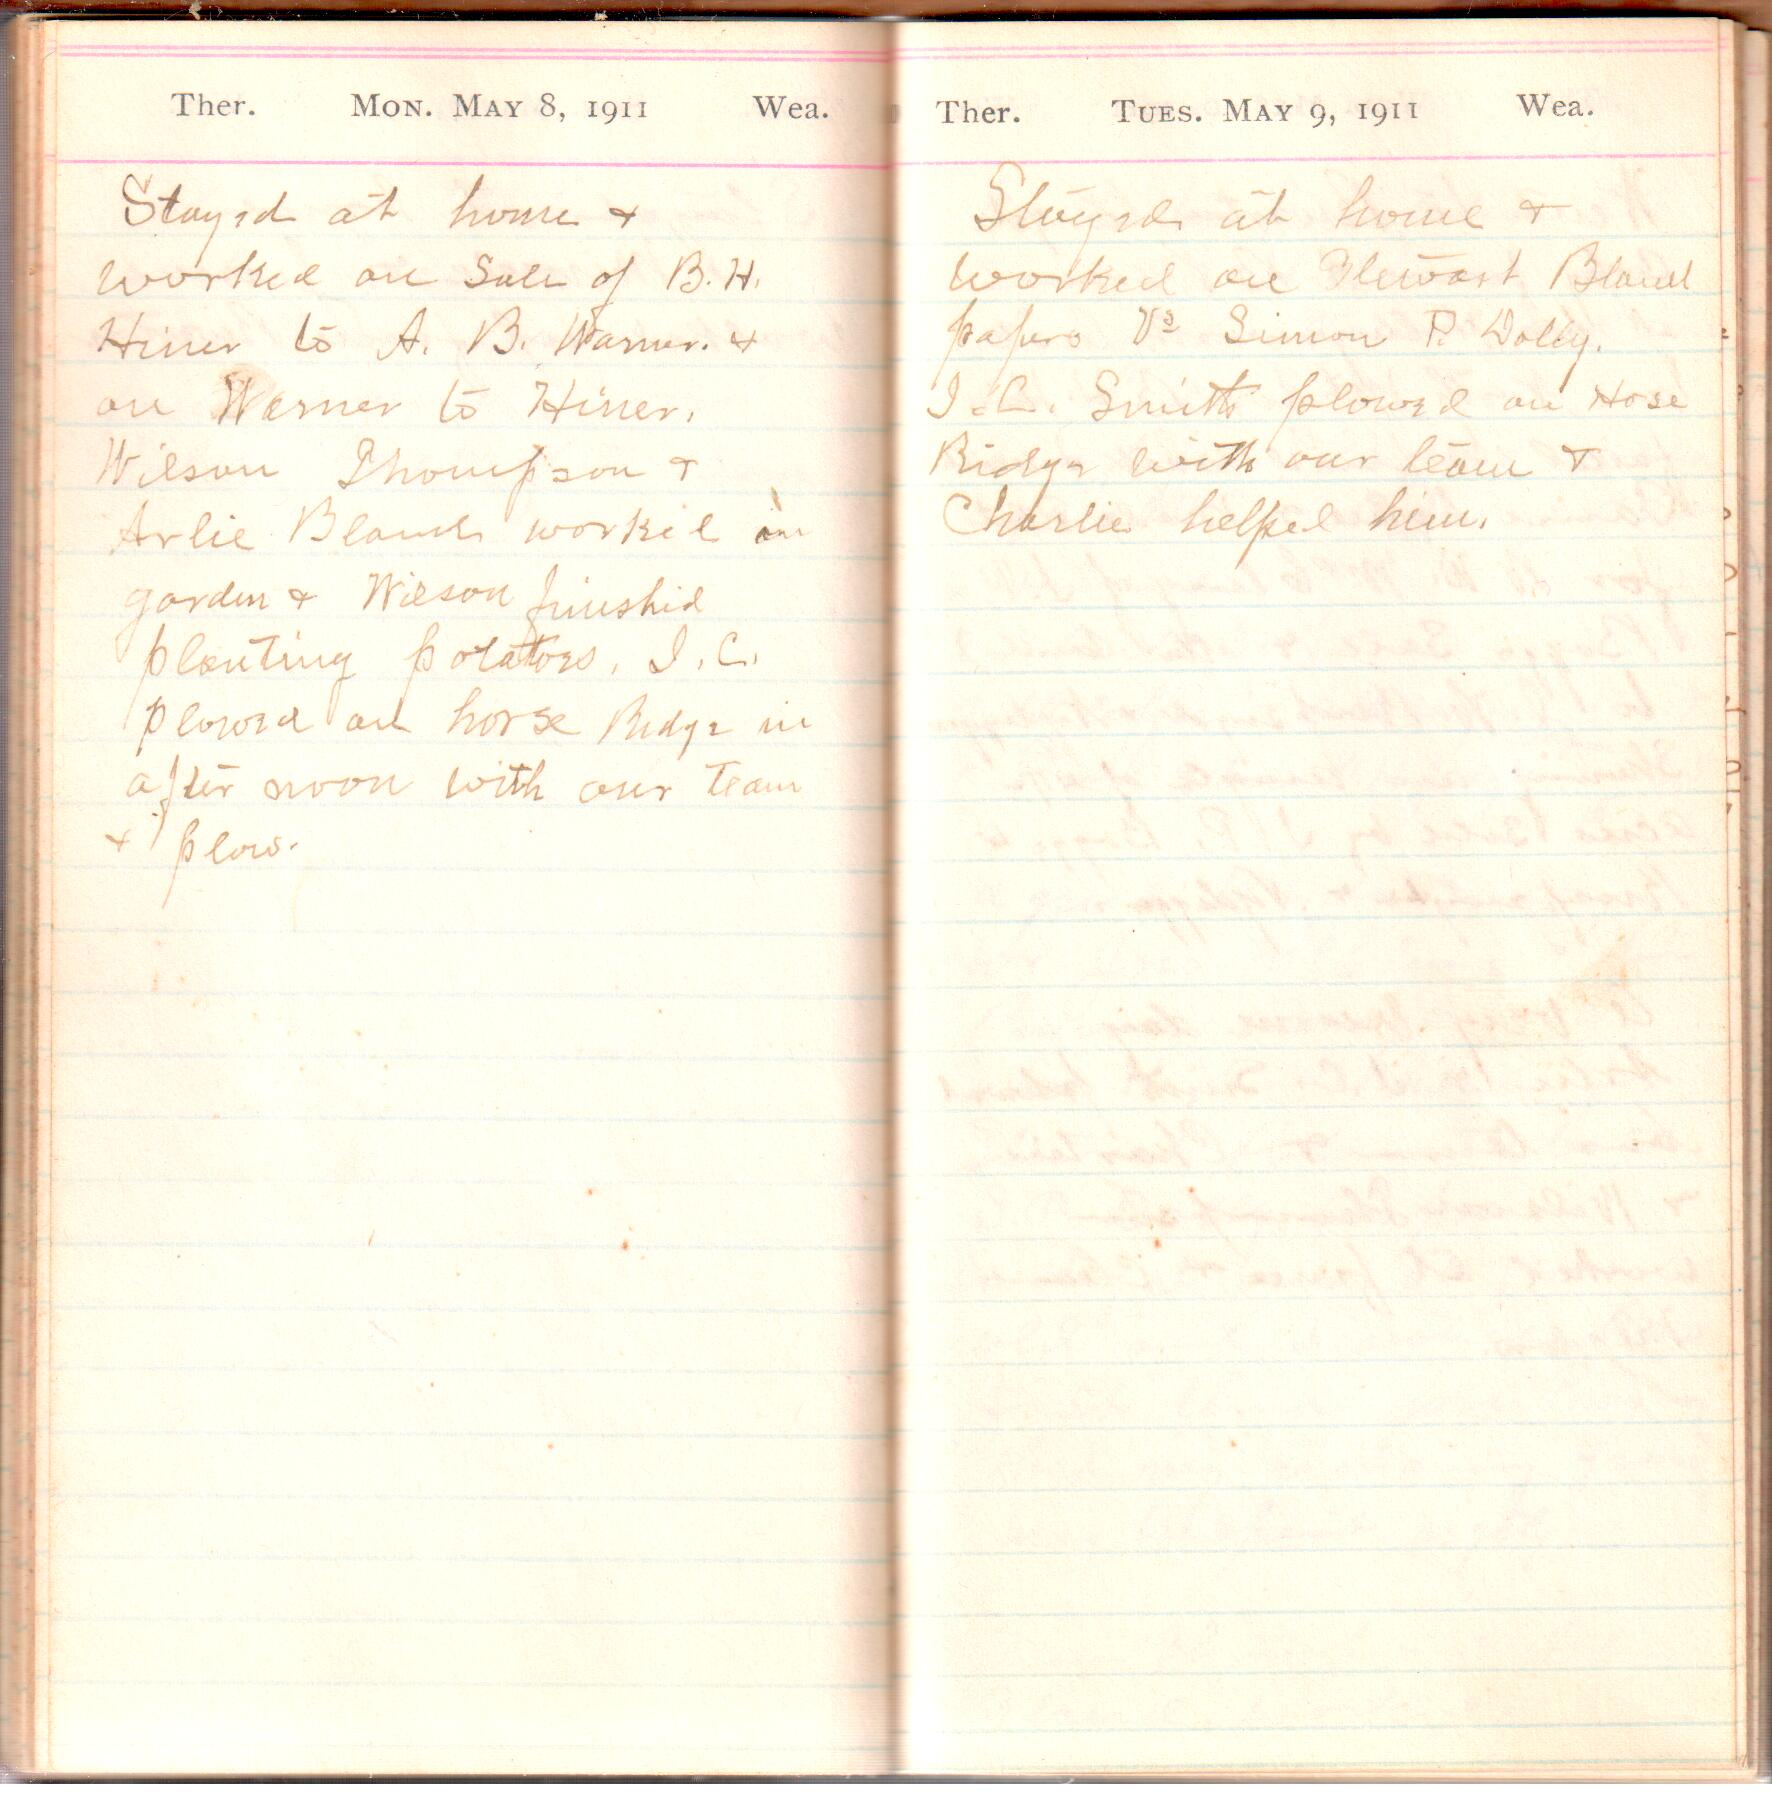 Ther. Mon. May 8, 1911 Wea.
Stayed at home &
worked on Sale of B. H.
Hiner to A. B. Warner. &
on Warner to Hiner.
Wilson Thompson &
Arlie Bland worked in
garden & Wilson finishid
planting potatoes. I. C.
plowed on horse Ridge in
after noon with our Team
& plow.
Ther. Tues. May 9, 1911 Wea.
Stayed at home &
worked on Stewart Bland
papers Vs Simon P. Dolly.
I. C. Smith plowed on Hose
Ridge with our team &
Charlie helped him.